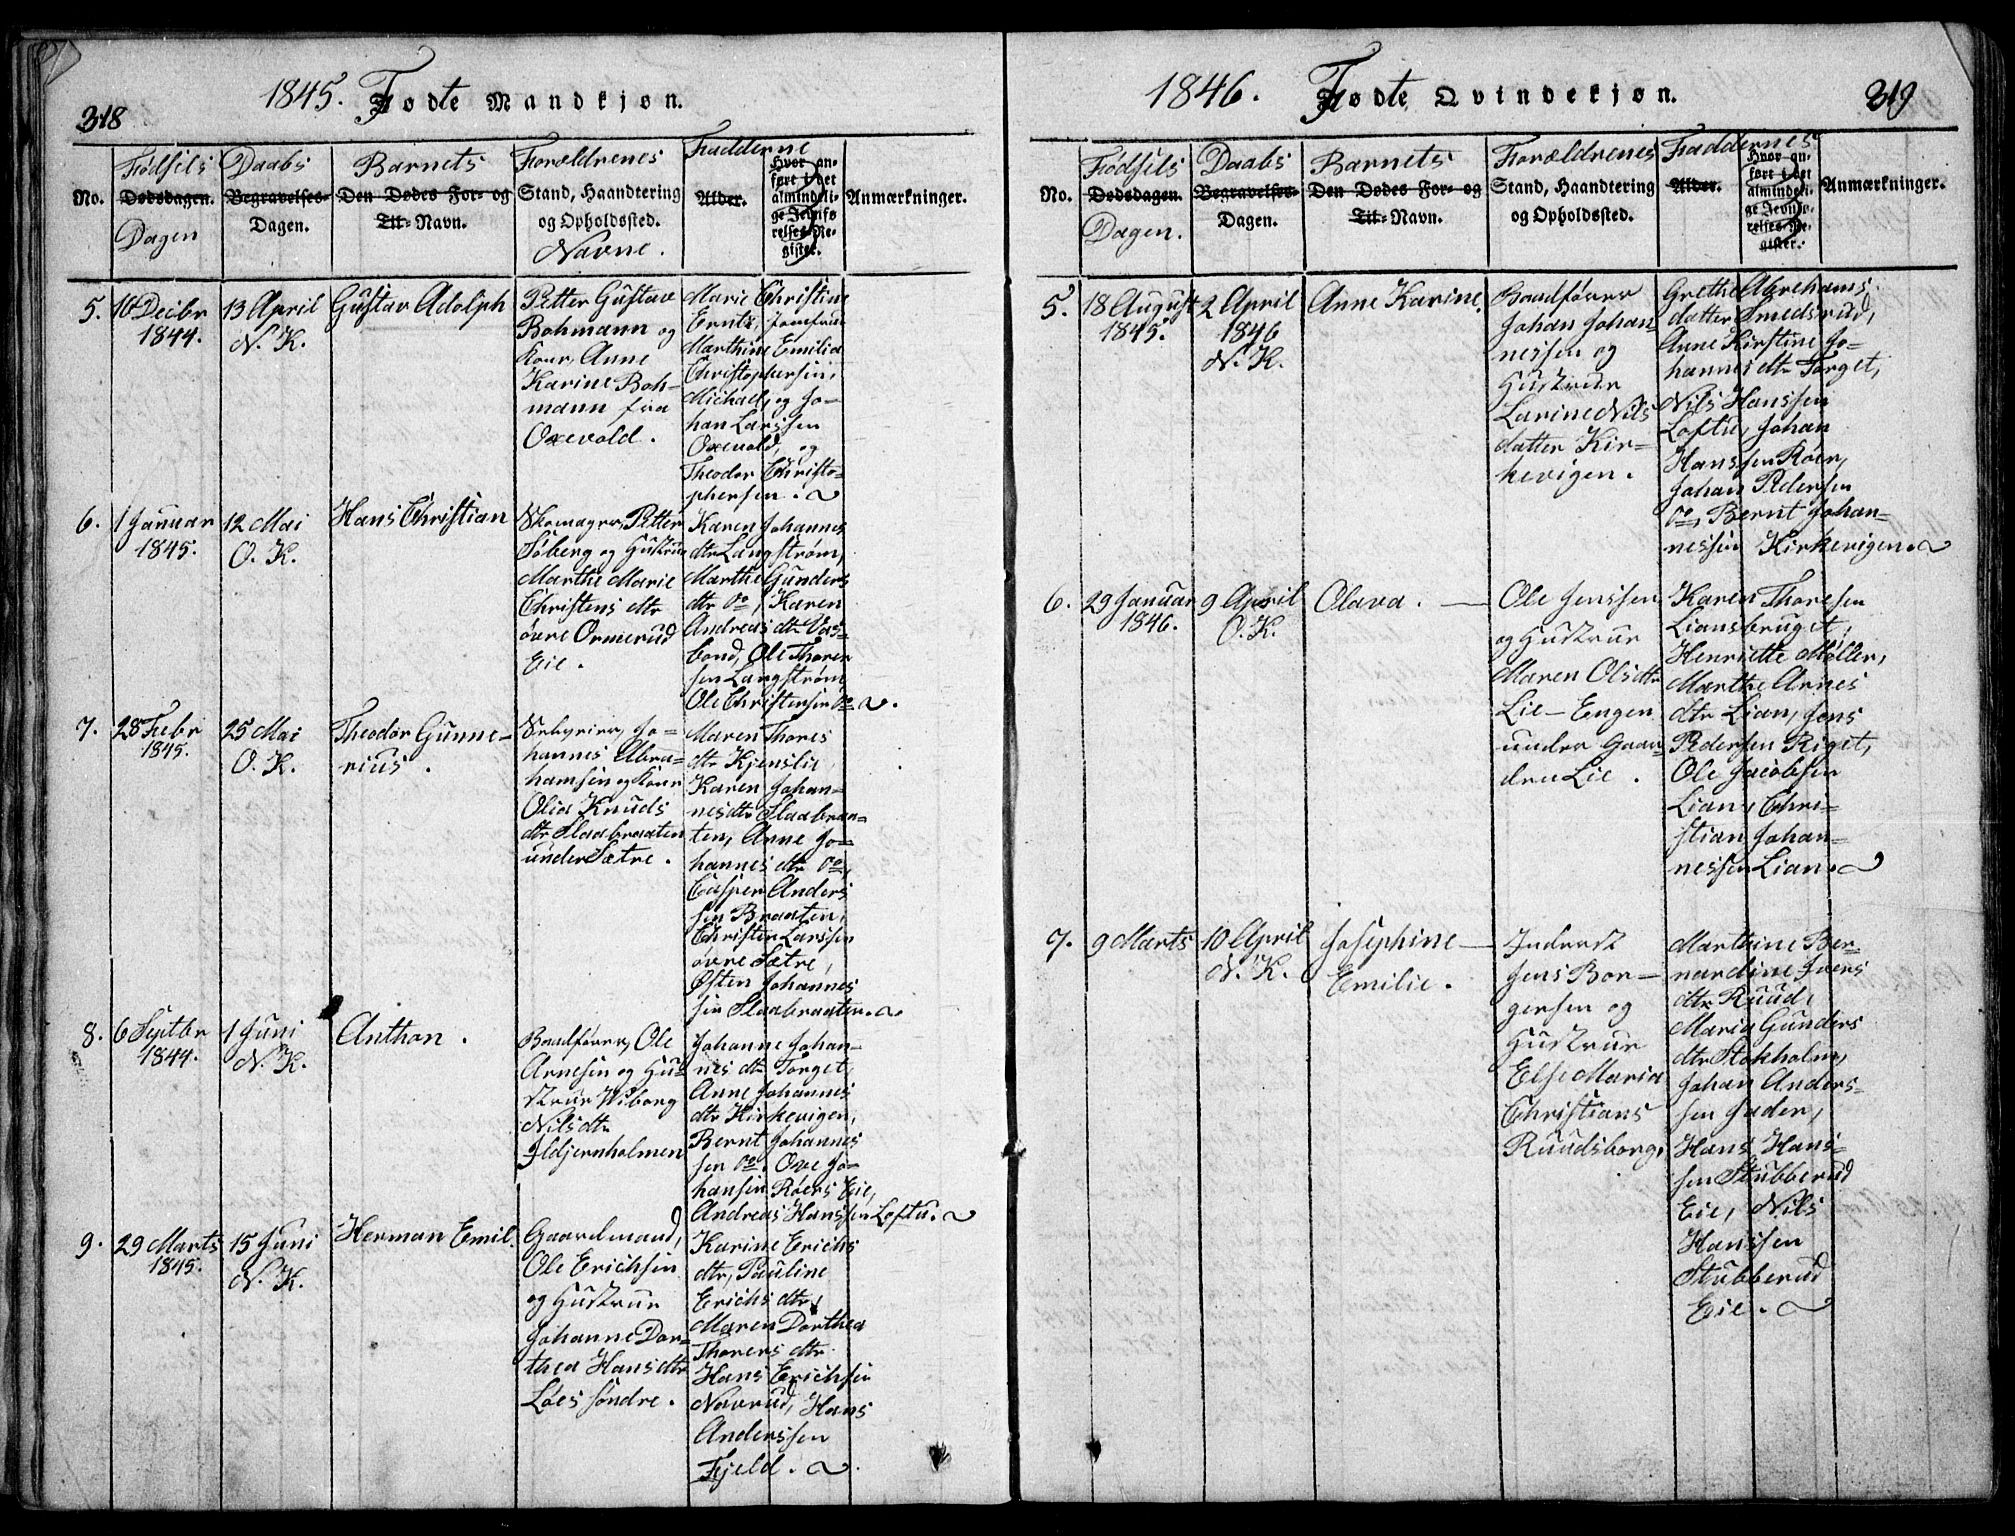 318
1845. Fødte Mandkjøn.
No.
Fødsels
Dødsdagen.
Dagen
Daabs
Begravelses-
Dagen.
Barnets
Den Dødes For- og
Til-Navn.
Forældrenes
Stand, Haandtering
og Opholdssted.
Navne.
Fadderne
Alder.
Hvor an-
ført i det
almindeli-
ge Jevnfø-
relses-Re-
gister.
Anmærkninger.
5.
10 Decbr
1844.
13 April
N. K.
Gustav Adolph
Petter Gustav
Bohmann og
Kone Anne
Karine Boh-
mann fra
Oxevold.
Marie Christine
Erntz, Jomfrue
Marthine Emilia
Christophersen,
Michael, og Jo-
han Larssen
Oxevold, og
Theodor Christo-
phersen.
6.
1 Januar
1845.
12 Mai
O. K.
Hans Christian
Skomager, Petter
Søberg og Hustrue
Marthe Marie
Christens dtr
øvre Ormerud
Eie.
Karen Johannes
dtr Langstrøm,
Marthe Gunders
dtr do, Karen
Andreas dtr Vas-
bond, Ole Thoren
sen Langstrøm
Ole Christensen do.
7.
28 Febr
1845.
25 Mai
O. K.
Theodor Gunne-
rius.
Selveier, Jo-
hannes Abra-
hamsen og Kone
Olia Knuds
dtr Slaabraaten
under Sætre.
Maren Thores
dtr Kjenslie
Karen Johan-
nesdtr Slaabraa-
ten, Anne Jo-
hannes dtr do,
Casper Anders
sen Braaten,
Christen Larssen
øvre Sætre,
Østen Johannes
sen Slaabraaten.
8.
6 Septbr
1844.
1 Juni
N. K.
Anthon.
Baadfører, Ole
Arnesen og Hu-
strue Wiborg
Nilsdtr
Ildjernholmen
Johanne Johan-
nes dtr Torget,
Anne Johannes
dtr Kirkevigen,
Bernt Johannes
sen do. Ove Jo-
hansen Røers Eie,
Andreas Hanssen Loftu.
9.
29 Marts
1845.
15 Juni
N. K.
Herman Emil.
Gaardmand,
Ole Erichsen
og Hustrue
Johanne Dor-
thea Hansdtr
Løes søndre.
Karine Erichs
dtr, Pauline
Erichs dtr,
Maren Dorthea
Thorers dtr.
Hans Erichsen
Naverud, Hans
Anderssen
Fjeld.
1846. Fødte Qvindekjøn.
319
No.
Fødsels
Dødsdagen.
Dagen.
Daabs
Begravelses-
Dagen.
Barnets
Den Dødes For- og
Til-Navn.
Forældrenes
Stand, Haandtering
og Opholdssted.
Faddernes
Alder.
Hvor an-
ført i det
almindeli-
ge Jevnfø-
relses-Re-
gister.
Anmærkninger.
5.
18 August
1845.
2 April
1846
N. K.
Anne Karine.
Baadfører
Johan Johan-
nessen og
Hustrue
Larine Nils
datter Kir-
kevigen.
Grethe Abrehams-
datter Smedsrud,
Anne Kirstine Jo-
hannes dtr Torget,
Nils Hanssen
Loftu, Johan
Hanssen Røer,
Johan Pedersen
do, Bernt Johan-
nessen Kirkevigen.
6.
29 Januar
1846.
9 April
O. K.
Olava.
Ole Jenssen
og Hustrue
Maren Olsdtr
Lie-Engen
under Gaar-
den Lie.
Karen Thoresen
Liansbruget,
Henriette Møller,
Marthe Arnes
dtr Lian, Jens
Pedersen Riget,
Ole Jacobsen
Lian, Chri-
stian Johan-
nessen Lian.
7.
9 Marts
10 April
N. K.
Josephine
Emilie.
Inderst
Jens Bor-
gersen og
Hustrue
Else Maria
Christians
Ruudsborg,
Marthine Ber-
nardine Ivers
dtr Ruud,
Maria Gunders
dtr Stokholm,
Johan Anders-
sen Jader,
Hans Hans-
sen Stubberud
Eie, Nils
Hanssen
Stubberud
Eie.